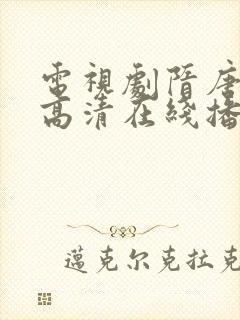 電視劇隋唐
高清在綫播
邁克尔克拉克